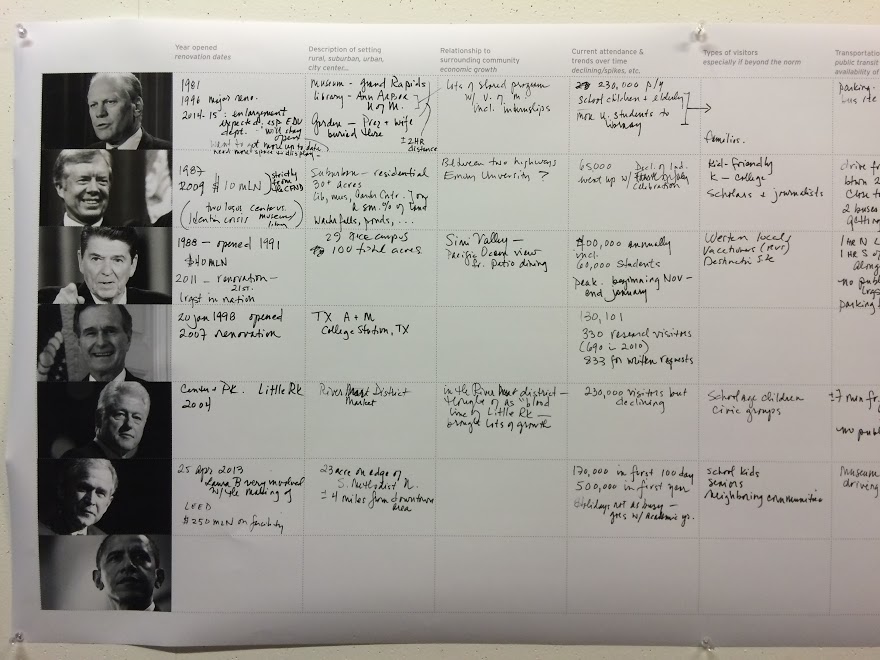 Year opened
renovation dates
Description of setting
rural, suburban, urban,
city center...
Relationship to
surrounding community
economic growth
Current attendance &
trends over time
declining/spikes, etc.
Types of visitors
especially if beyond the norm
Transportatio
public transit
availability of
1981
1996 major reno.
2014-15: enlargement
expected, esp EDU
dept. - will stay
open
Want to get more up to date
need more space + display
Museum - Grand Rapids
Library - Ann Arbor
U of M.
Garden - Prez + wife
buried there
± 2 HR
distance
Lots of shared program
w/ U. of "m"
incl. internships
230,000 p/y
school children + elderly
more U. students to
library
families.
parking.
bus
1987
2009 $10 MLN
strictly
from
(two logos centerus.
Identity crisis museum/
library)
Suburban - residential
30+ acres
Lib, mus, Cntr.
a sm. % of land
Waterfalls, ponds, ...
Between two highways
Emory University ?
65000
went up w/
celebration
Kid-friendly
K - college
Scholars + journalists
drive
btwn 2
Close to
2 buses
getting
1988 - opened 1991
$40MLN
2011 - renovation -
21st.
Lrgst in nation
29 acre campus
100 total acres
Simi Valley -
Pacific Ocean view
fr. patio dining
00,000 annually
incl.
60,000 students
peak. beginning Nov -
end January
Western locals
Vacationers
Destination Site
1 HR N
1 HR S
along
no pub
parking
20 Jan 1998 opened
2007 renovation
TX A + M
College Station, TX
130,101
330 research visitors
(690 in 2010)
833 for written requests
Center + Pk. Little Rk
2004
River Market District
Market
in the River district -
thought of as "blood
line of Little Rk -
brought lots of growth
230,000 visitors but
declining
School age children
Civic groups
±7 min fr
no pub
25 Apr 2013
Laura B very involved
w/ the making of
LEED
$250 MLN on facility
23 acre on edge of
S. Methodist U.
± 4 miles from downtown
area
170,000 in first 100 day
500,000 in first year
Holidays not as busy -
goes w/ Academic yr.
School kids
Seniors
neighboring communities
Museum
driving